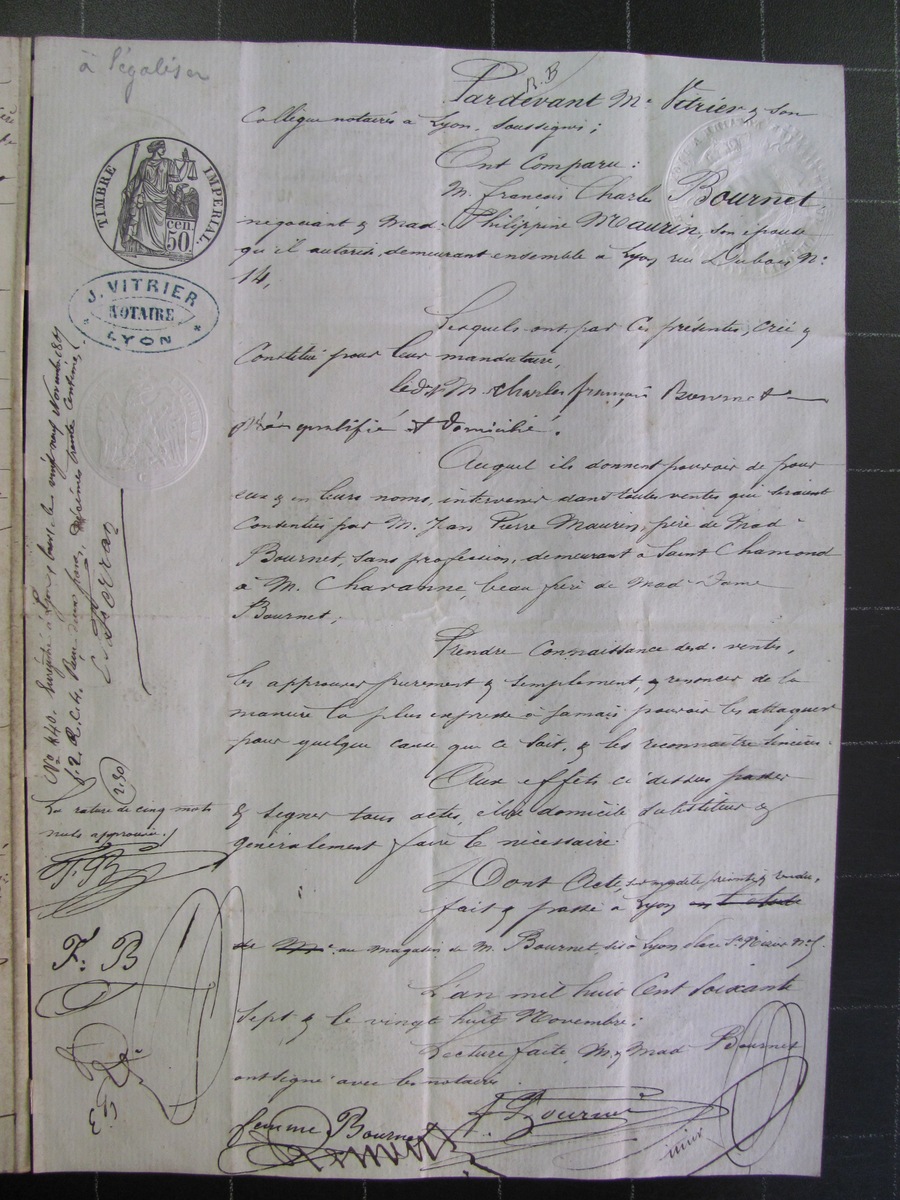 à légaliser
N. B
Pardevant Me Vitrier & son
Collègue notaires à Lyon, soussignés ;
Ont Comparu :
M. François Charles Bournet,
négociant & Mad. Philippine Maurin, son épouse
qu'il autorise, demeurant ensemble à Lyon rue Dubois No
14,
Lesquels ont par ces présentes, créé &
Constitué pour leur mandataire,
led. M. Charles françois Bournet
qualifié et domicilié.
Auquel ils donnent pouvoir de pour
eux & en leurs noms, intervenir dans toutes ventes qui seraient
Consenties par M. Jean Pierre Maurin, père de Mad.
Bournet, sans profession, demeurant à Saint Chamond
à M. Charanne, beau frère de Mad. Dame
Bournet,
Prendre connaissance desd. ventes,
les approuver purement & simplement, & renoncer de la
manière la plus expresse à jamais pouvoir les attaquer
pour quelque cause que ce soit, & les reconnaitre sincères.
Aux effets ci dessus passer
& signer tous actes, élire domicile substituer &
généralement faire le nécessaire.
Dont Acte,
fait & passé à Lyon en l'étude
de Me au magasin de M. Bournet, sis à Lyon place St Nizier No 5.
L'an mil huit Cent soixante
sept & le vingt huit Novembre ;
Lecture faite, M. & Mad. Bournet
ont signé avec les notaires.
femme Bournet
F. Bournet
TIMBRE IMPERIAL
50 cen.
J. VITRIER
NOTAIRE
LYON
No 440. Enregistré à Lyon, le vingt neuf Novembre 1867
f. 2. R. C. 4. Reçu deux francs, décimes trente centimes,
2,30
La rature de cinq mots
nuls approuvée.
F. B